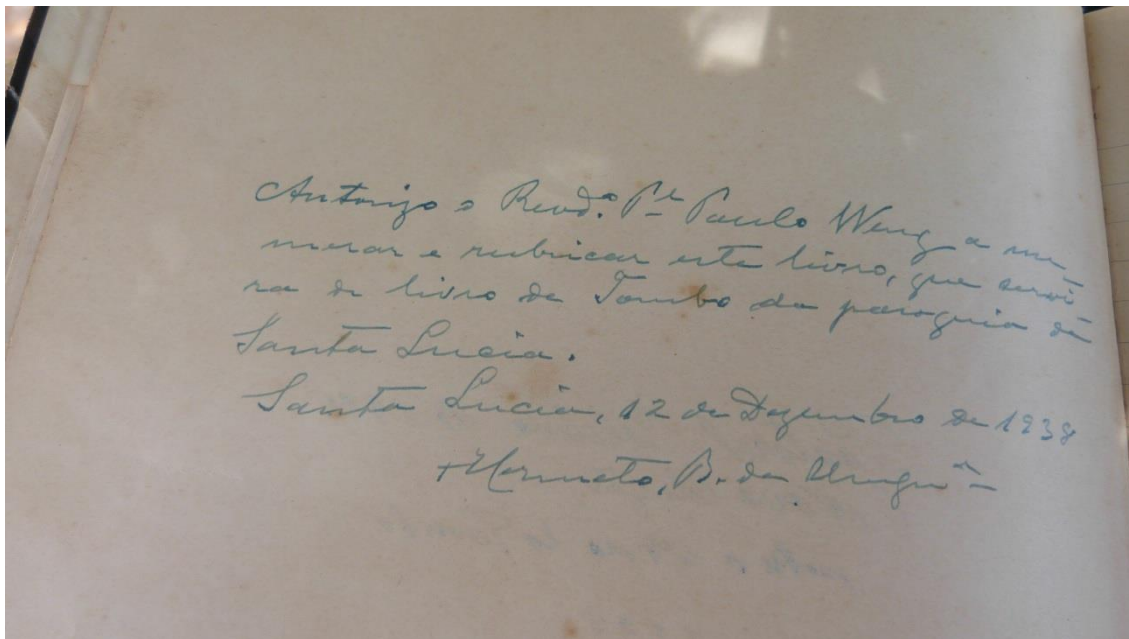 Autorizo o Revdº. Pe Paulo Weng a nu-
merar e rubricar este livro, que servi-
ra de livro de Tombo da paroquia de
Santa Lucia.
Santa Lucia, 12 de Dezembro de 1938
+ Hermeto, B. de Urugª-